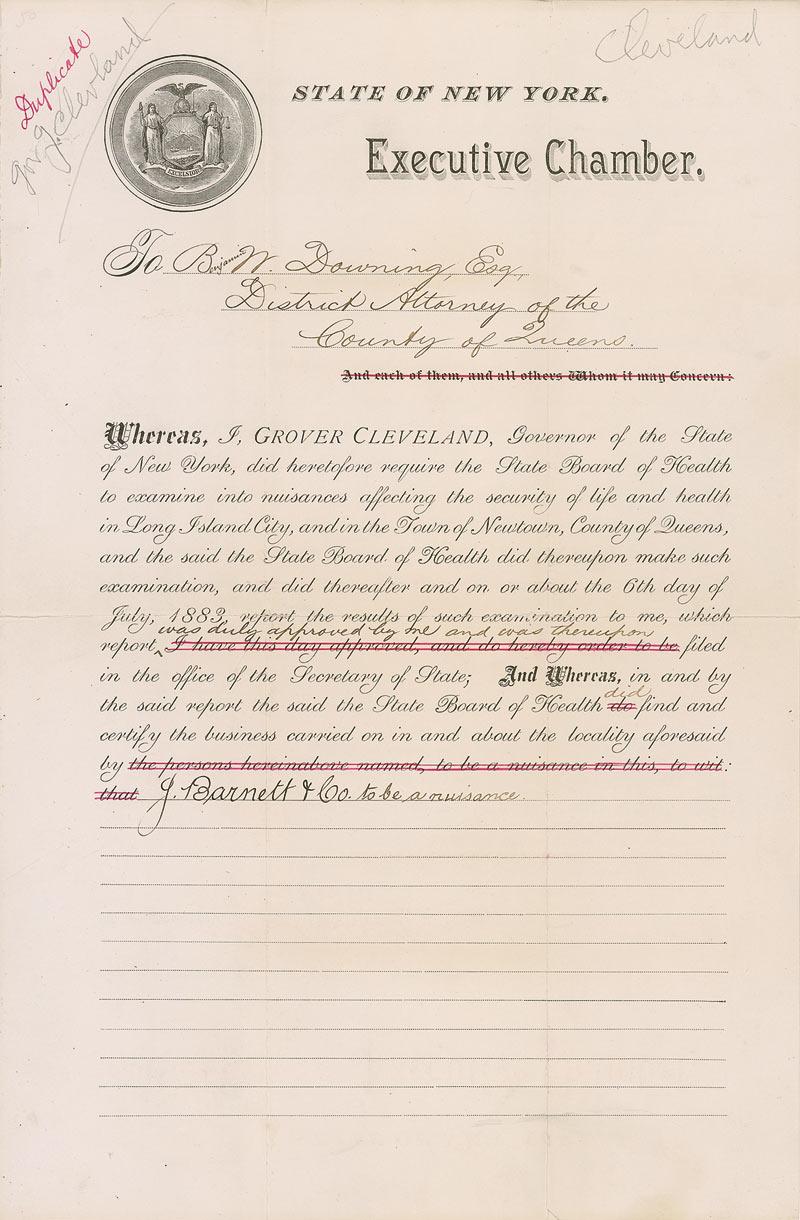 Duplicate
Gov. G. Clevland
Cleveland
EXCELSIOR
STATE OF NEW YORK.
Executive Chamber.
To Benjamin W. Downing, Esq,
District Attorney of the
County of Queens.
And each of them, and all others Whom it may Concern:
Whereas, I, GROVER CLEVELAND, Governor of the State
of New York, did heretofore require the State Board of Health
to examine into nuisances affecting the security of life and health
in Long Island City, and in the Town of Newtown, County of Queens,
and the said the State Board of Health did thereupon make such
examination, and did thereafter and on or about the 6th day of
July, 1883, report the results of such examination to me, which
was duly approved by me and was thereupon
report, I have this day approved, and do hereby order to be filed
in the office of the Secretary of State; And Whereas, in and by
did
the said report the said the State Board of Health do find and
certify the business carried on in and about the locality aforesaid
by the persons hereinabove named, to be a nuisance in this, to wit:
that J. Barnett & Co. to be a nuisance.